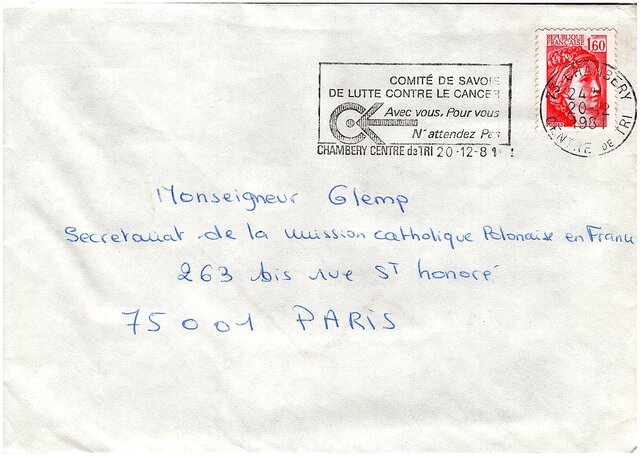 COMITÉ DE SAVOIE
DE LUTTE CONTRE LE CANCER
Avec vous, Pour vous
N'attendez Pas
CHAMBERY CENTRE de TRI 20-12-81
REPUBLIQUE
FRANCAISE
1,60
CHAMBERY
24 H
20-12
1981
CENTRE DE TRI
Monseigneur Glemp
Secretariat de la mission catholique Polonaise en France
263 bis rue St honoré
75001 PARIS